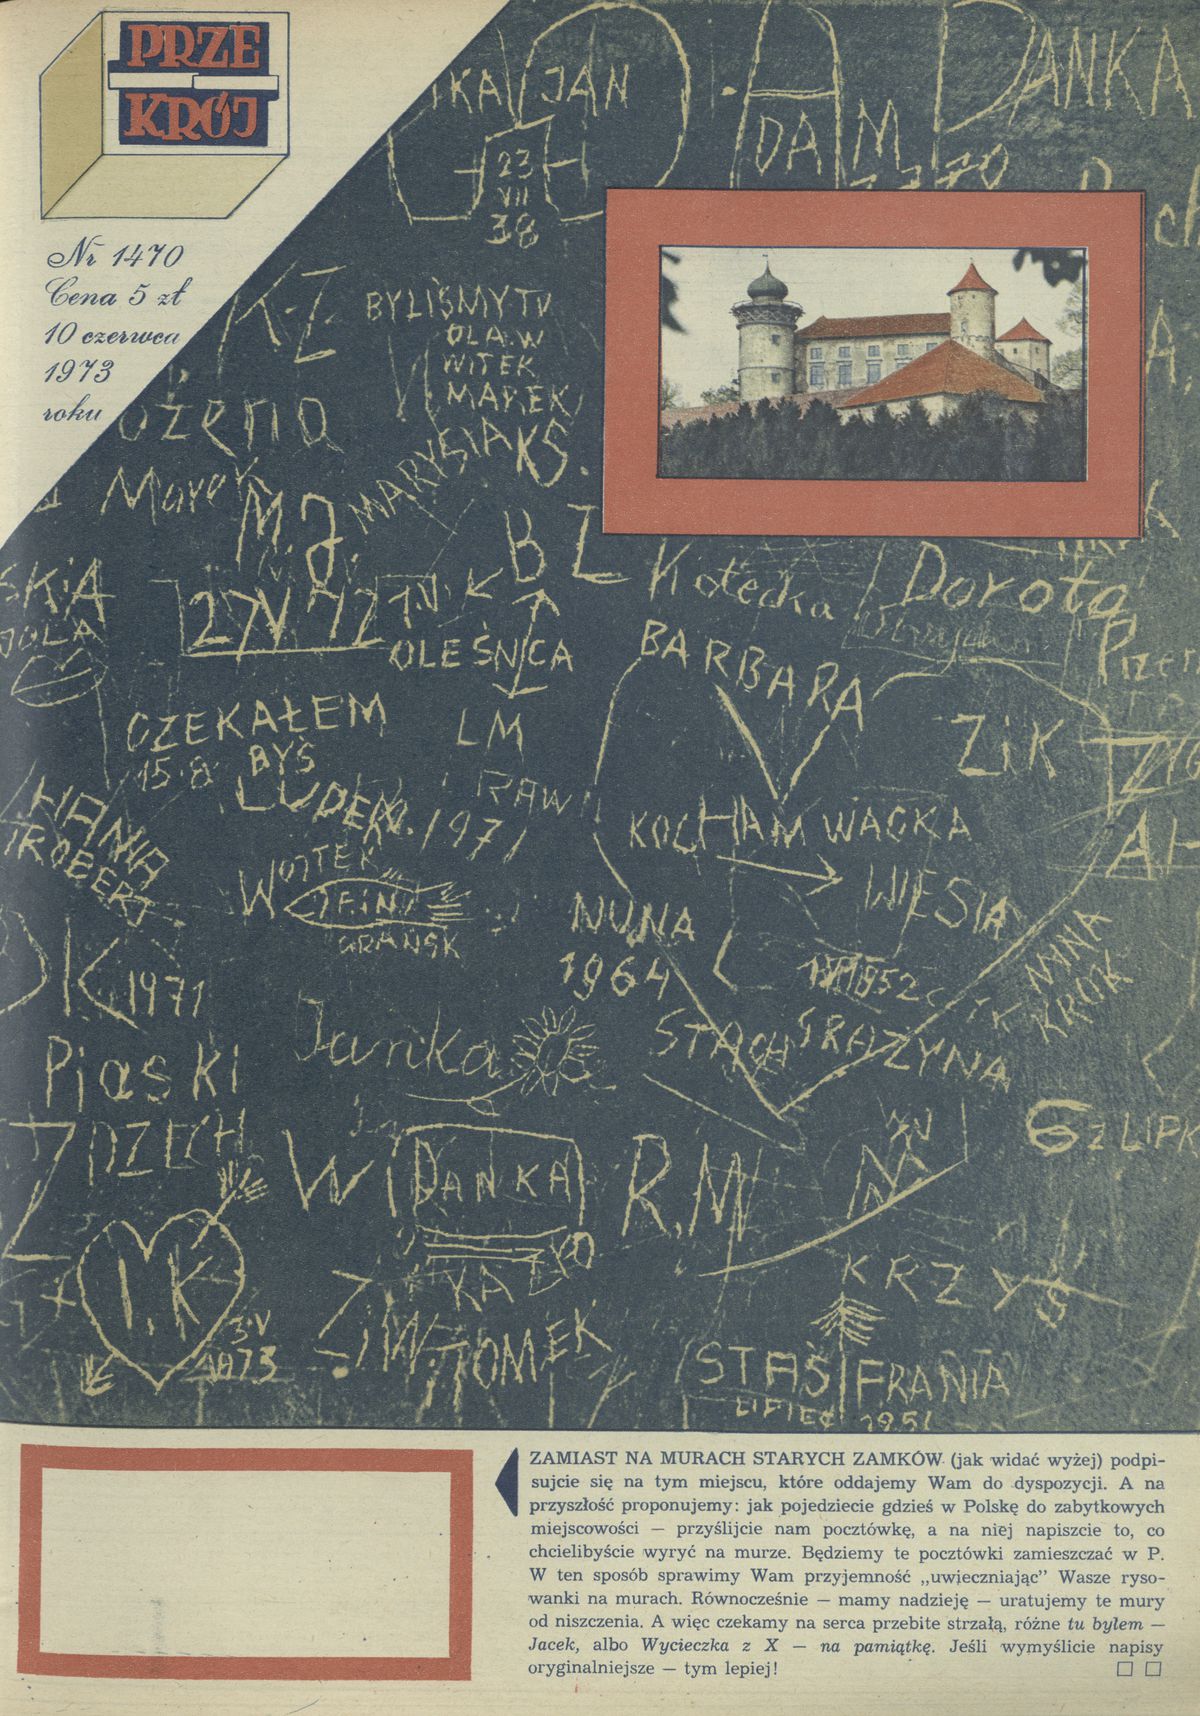 PRZE
KRÓJ
Nr 1470
Cena 5 zł
10 czerwca
1973
roku
JAN
ADAM
DANKA
23
VII
38
K.Z.
BYLIŚMY TU
OLA.W
WITEK
MAREK
MARYSIA KS.
Marek
M.J.
B Z
27 V 72
OLEŚNICA
Kotecka
Dorota
JOLA
BARBARA
CZEKAŁEM
15.8 BYŚ
LM
ZiK
LUDEK
197
RAW
HANNA
ROBERT
KOCHAM WACKA
WIESIA
WOJTEK
W
NUNA
1964
NINA
KROK
1971
Janka
STACH
GRAŻYNA
Piaski
W
DANKA
R.M
I.K
3.V
1973
KRZYŚ
Z.W.
TOMEK
STAŚ FRANIA
LIPIEC 1951
ZAMIAST NA MURACH STARYCH ZAMKÓW (jak widać wyżej) podpi-
sujcie się na tym miejscu, które oddajemy Wam do dyspozycji. A na
przyszłość proponujemy: jak pojedziecie gdzieś w Polskę do zabytkowych
miejscowości — przyślijcie nam pocztówkę, a na niej napiszcie to, co
chcielibyście wyryć na murze. Będziemy te pocztówki zamieszczać w P.
W ten sposób sprawimy Wam przyjemność „uwieczniając" Wasze ryso-
wanki na murach. Równocześnie — mamy nadzieję — uratujemy te mury
od niszczenia. A więc czekamy na serca przebite strzałą, różne tu byłem —
Jacek, albo Wycieczka z X — na pamiątkę. Jeśli wymyślicie napisy
oryginalniejsze — tym lepiej!